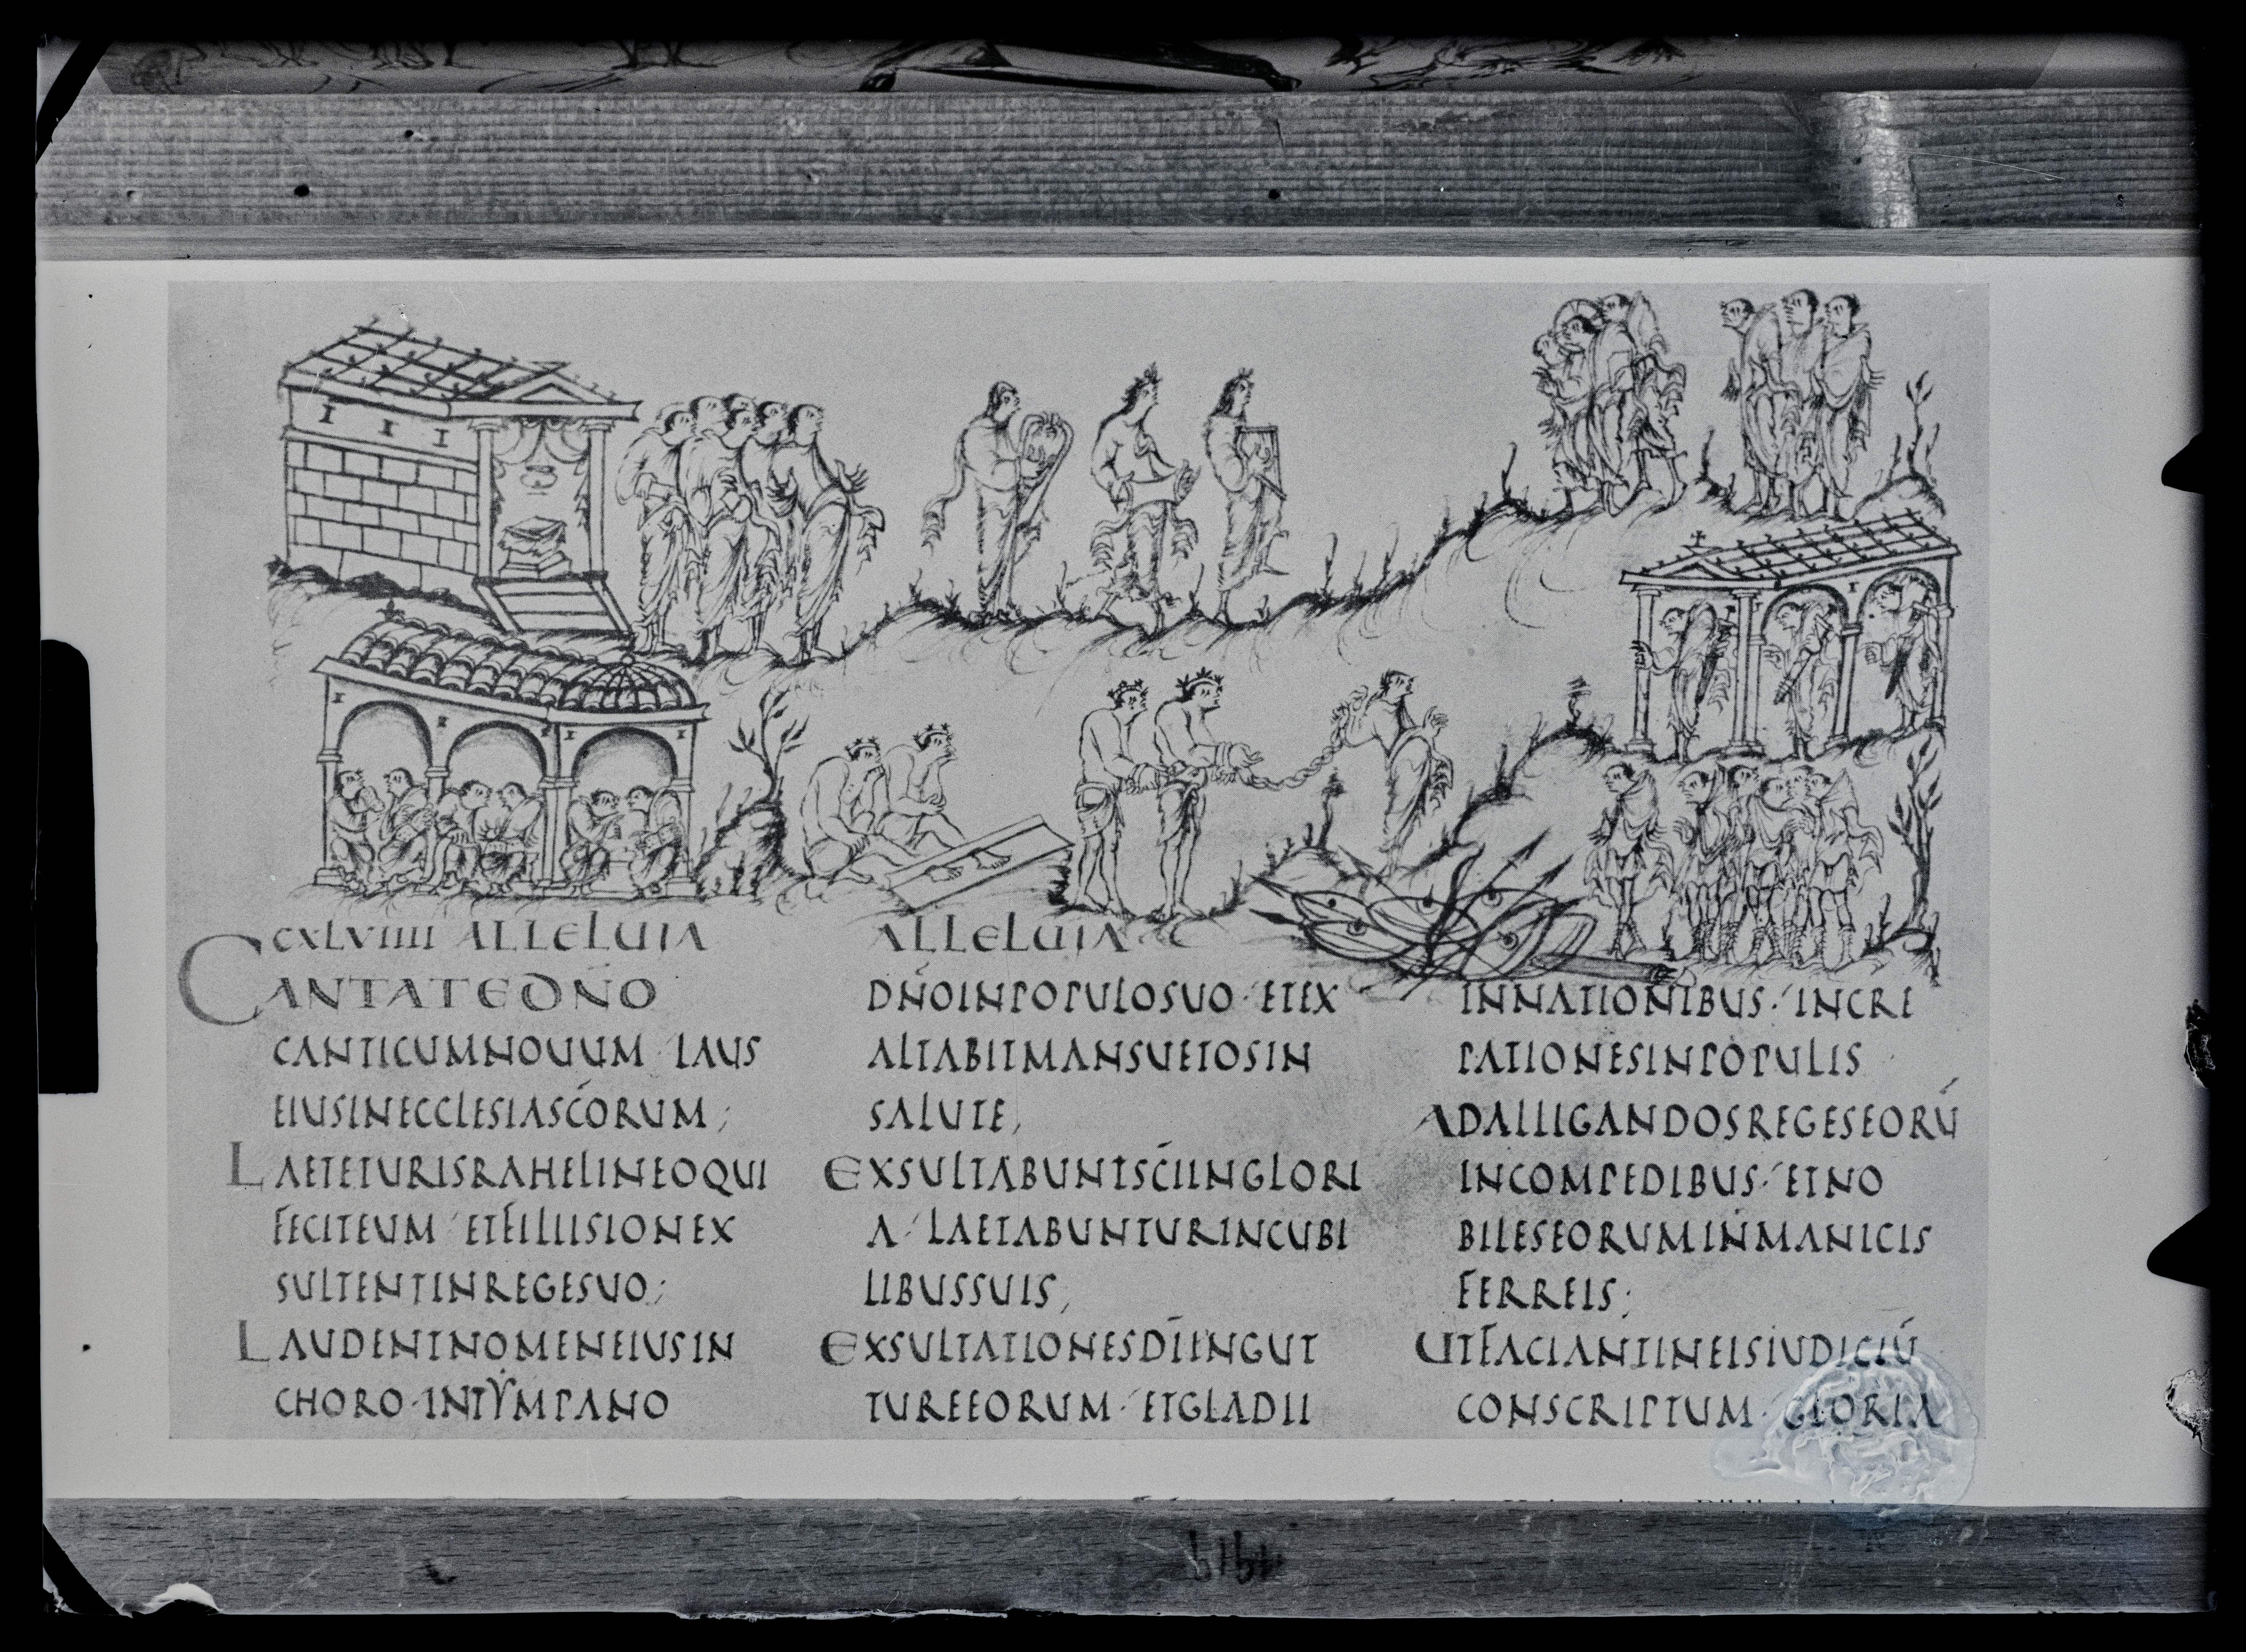 CXLVIIII ALLELUIA
CANTATE DÑO
CANTICUM NOUUM · LAUS
EIUS IN ECCLESIA SC̄ORUM;
LAETETUR ISRAHEL IN EO QUI
FECIT EUM · ET FILII SION EX
SULTENT IN REGE SUO;
LAUDENT NOMEN EIUS IN
CHORO · IN TYMPANO
ALLELUIA
DÑO IN POPULO SUO · ET EX
ALTABIT MANSUETOS IN
SALUTE,
EXSULTABUNT SC̄I IN GLORI
A · LAETABUNTUR IN CUBI
LIBUS SUIS,
EXSULTATIONES DĪ IN GUT
TURE EORUM · ET GLADII
IN NATIONIBUS · INCRE
PATIONES IN POPULIS
AD ALLIGANDOS REGES EORŪ
IN COMPEDIBUS · ET NO
BILES EORUM IN MANICIS
FERREIS;
UT FACIANT IN EIS IUDICIŪ
CONSCRIPTUM · GLORIA